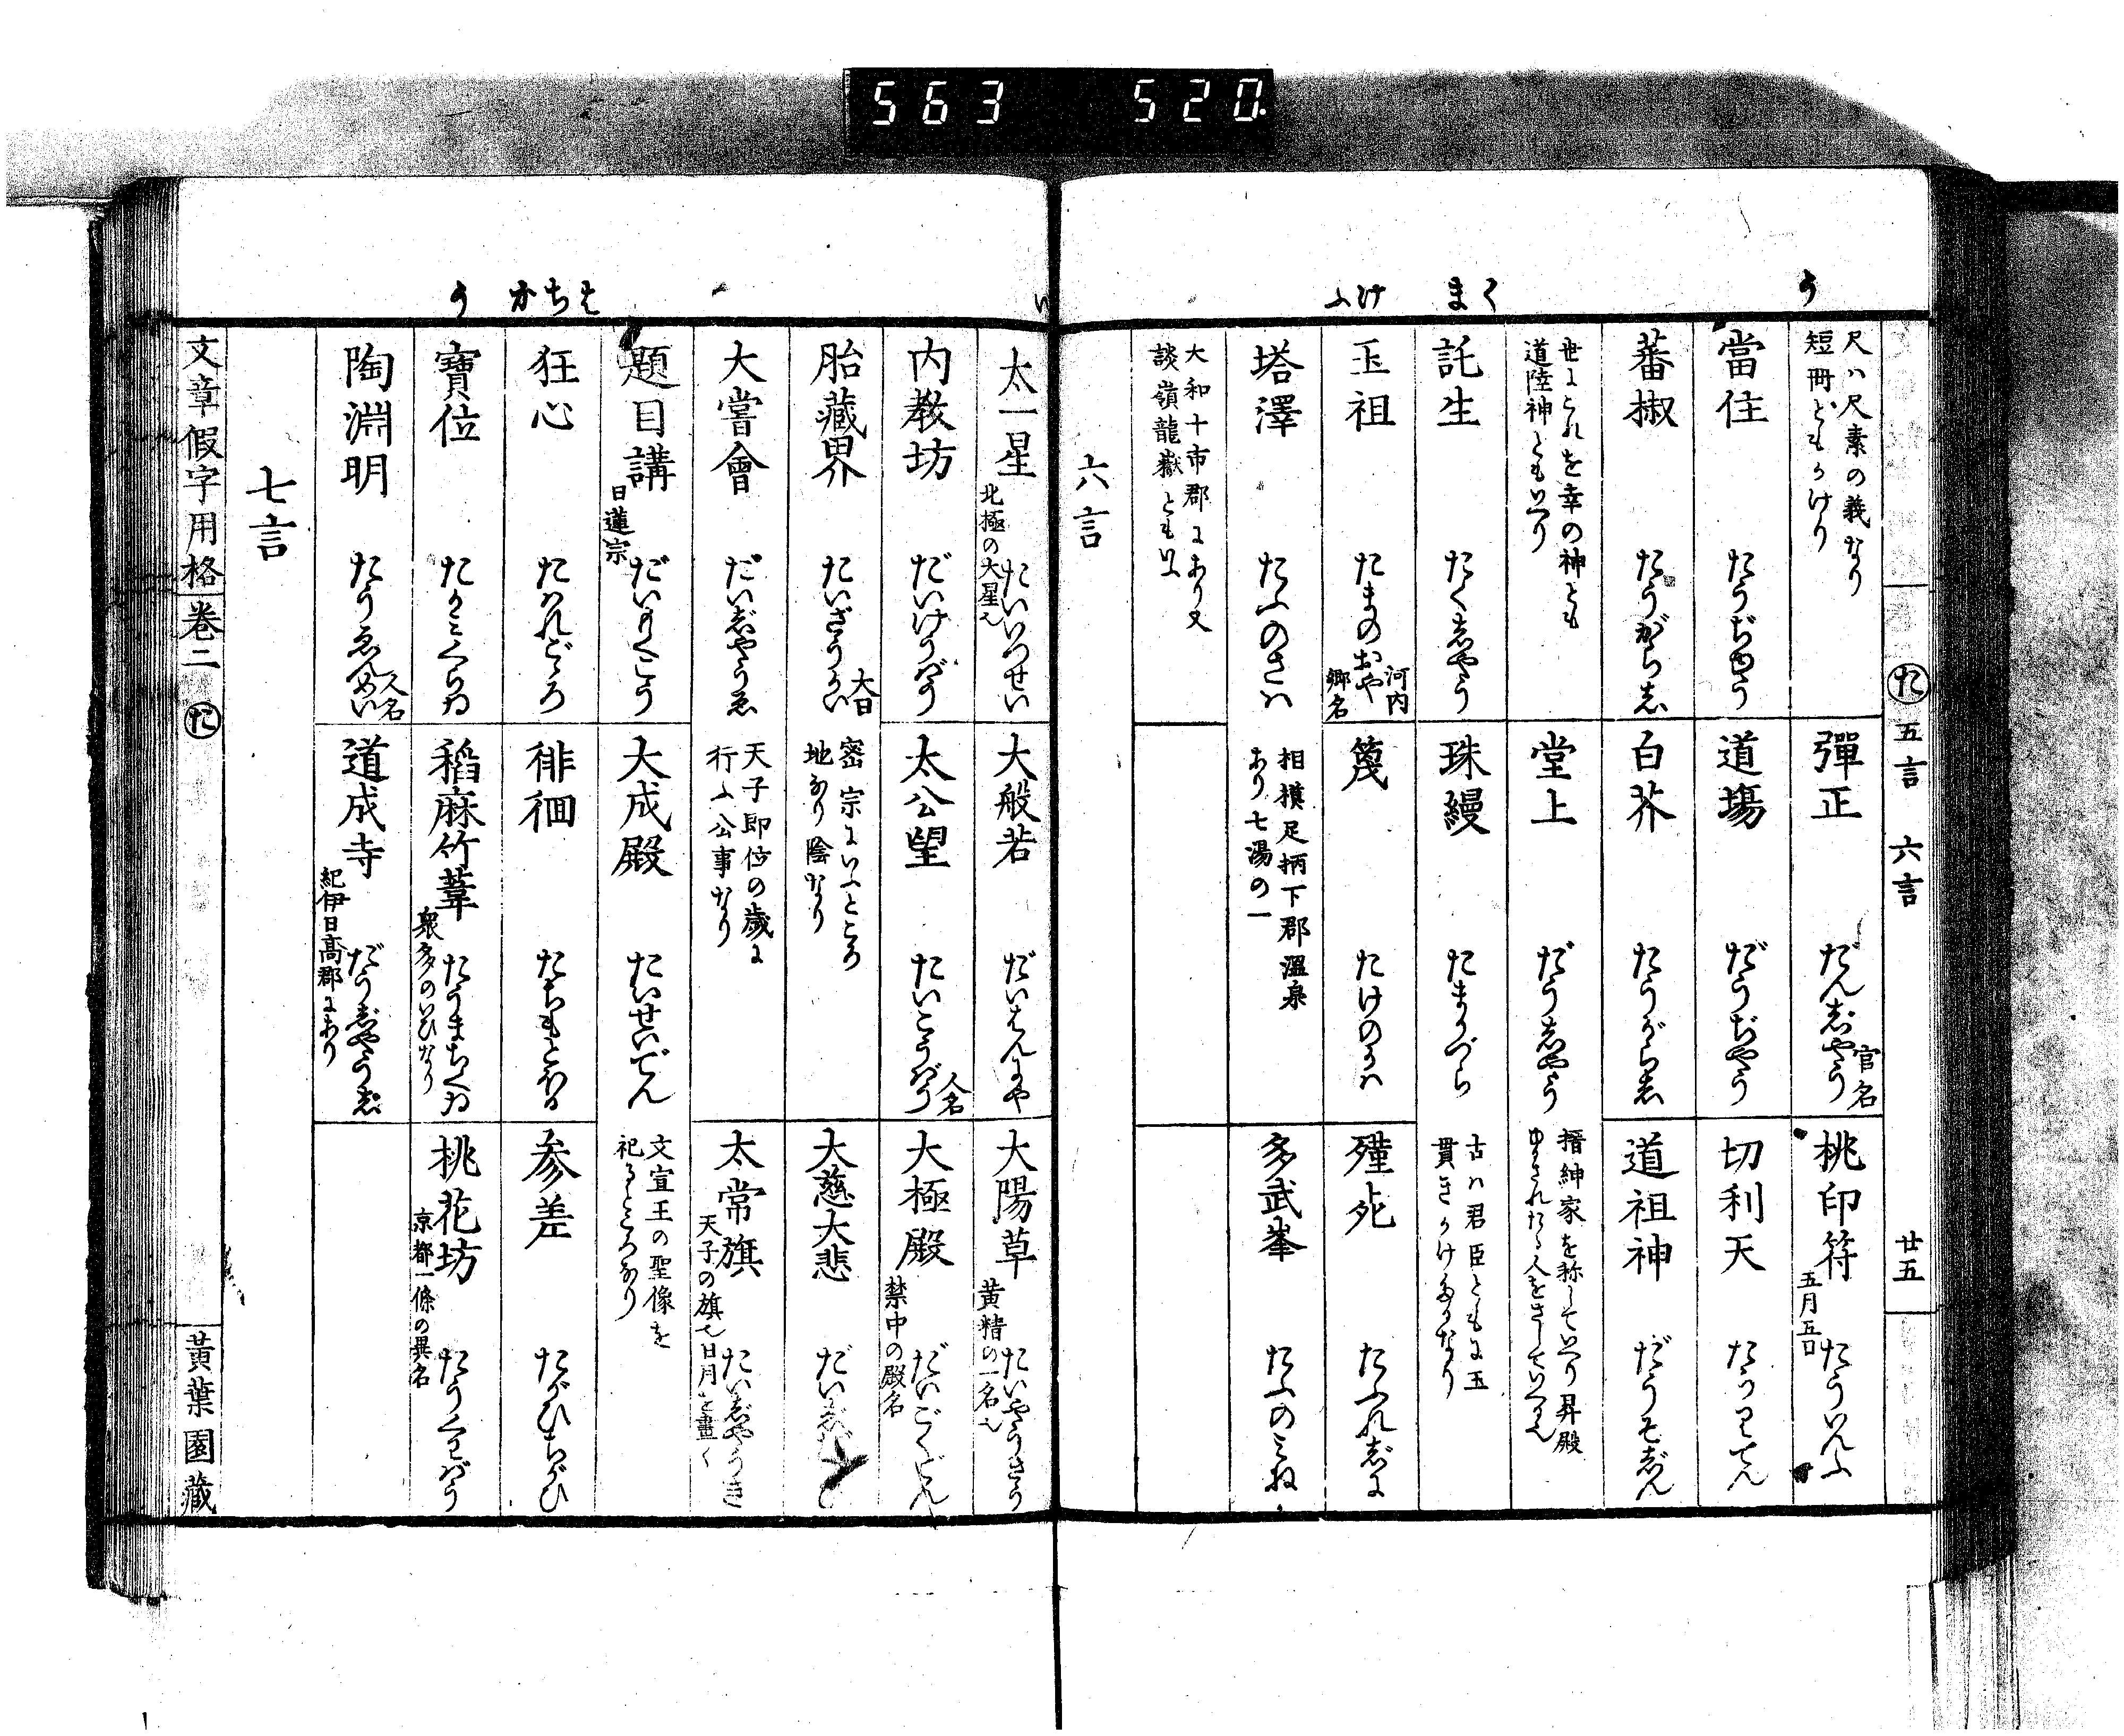 563 520
う
く
ま
け
ふ
た 五言 六言 廿五
尺ハ尺素の義なり
短冊ともかけり
彈正 だんじやう 官名
桃印符 たういんふ 五月五日
當住 たうぢゆう
道場 だうぢやう
切利天 たうりてん
蕃椒 たうがらし
白芥 たうがらし
道祖神 だうそじん
世にこれを幸の神とも
道陸神ともいへり
堂上 だうしやう
搢紳家を称していへり昇殿
託生 たくしやう
珠縵 たまかづら
古ハ君臣ともに玉
貫きかけるなり
玉祖 たまのおや 河内郷名
篾 たけのかハ
殭死 たふれじに
塔澤 たふのさハ
相摸足柄下郡温泉
あり七湯の一
多武峯 たふのみね
大和十市郡にあり又
談嶺龍嶽ともいふ
六言
い
はちか
う
太一星 たいいつせい 北極の大星也
大般若 だいはんにや
大陽草 たいやうさう 黄精の一名也
内教坊 だいけうばう
太公望 たいこうばう 人名
大極殿 だいごくでん 禁中の殿名
胎藏界 たいざうかい 大日
密宗にいふところ
地なり陰なり
大慈大悲
大嘗會 だいじやうゑ
天子即位の歳に
行ふ公事なり
太常旗 たいじやうき 天子の旗也日月を畫く
題目講 だいもくこう 日蓮宗
大成殿 たいせいでん
文宣王の聖像を
祀るところなり
狂心 たハれごゝろ
徘徊 たちもとほる
参差 たがひちがひ
寶位 たかみくらゐ
稻麻竹葦 たうまちくゐ 衆多のいひなり
桃花坊 たうくわばう 京都一條の異名
陶淵明 たうゑんめい 人名
道成寺 だうじやうじ 紀伊日高郡にあり
七言
文章假字用格 巻二 た 黄葉園藏